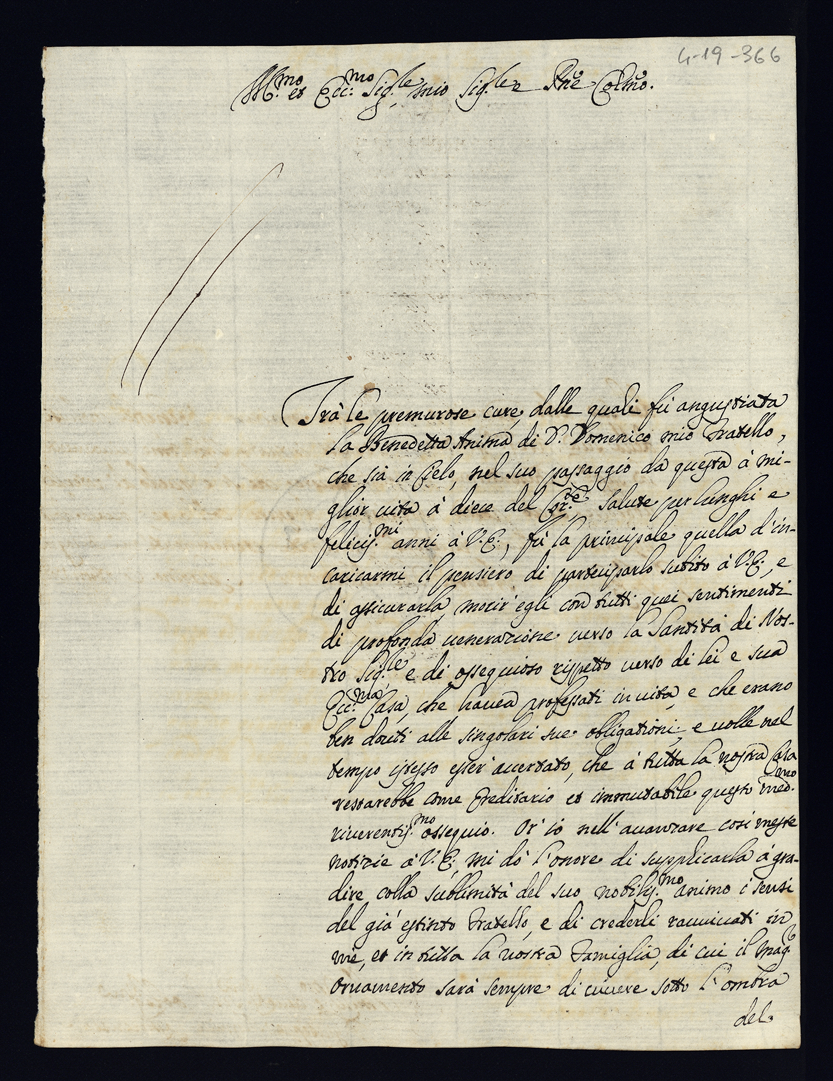 4-19-366
Ill.mo et Ecc.mo Sig.le mio Sig.le P̃rne Col̃mo.
Trà le premurose cure, dalle quali fù angustiata
la Benedetta Anima di D. Domenico mio Fratello,
che sia in Cielo, nel suo passaggio da questa à mi-
glior vita à diece del Cor.te, salute per lunghi e
feliciss.mi anni à V.E., fù la principale quella d'in-
caricarmi il pensiero di parteciparlo subito à V.E., e
di assicurarla morir' egli con tutti quei sentimenti
di profonda venerazione verso la Santità di Nos-
tro Sig.le e di ossequioso rispetto verso di Lei e sua
Ecc.ma Casa, che havea professati in vita, e che erano
ben douti alle singolari sue obligationi, e volle nel
tempo istesso esser' accertato, che à tutta la nostra Casa
restarebbe come Ereditario et immutabile questo med.mo
riverentiss.mo ossequio. Or' io nell'avanzare così meste
notizie à V.E., mi dò l'onore di supplicarla à gra-
dire colla sublimità del suo nobiliss.mo animo i sensi
del già estinto Fratello, e di crederli ravvivati in
me, et in tutta la nostra Famiglia, di cui il magr.
Ornamento sarà sempre di vivere sotto l'ombra
del.